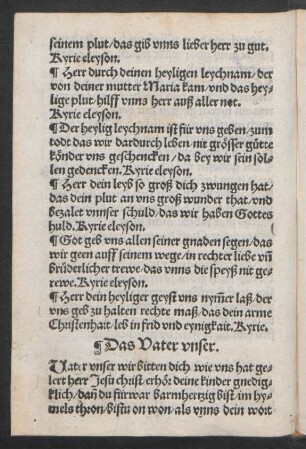 seinem plut/das gib vnns lieber herr zu gut.
Kyrie eleyson.
¶ Herr durch deinen heyligen leychnam/der
von deiner mutter Maria kam/vnd das hey-
lige plut/hilff vnns herr auß aller not.
Kyrie eleyson.
¶ Der heylig leychnam ist für vns geben/zum
todt das wir dardurch leben/nit grösser gütte
könder vns geschencken/da bey wir sein sol-
len gedencken. Kyrie eleyson.
¶ Herr dein leyb so groß dich zwungen hat/
das dein plut an vns groß wunder that/vnd
bezalet vnnser schuld/das wir haben Gottes
huld. Kyrie eleyson.
¶ Got geb vns allen seiner gnaden segen/das
wir geen auff seinem wege/in rechter liebe vn̄
brüderlicher trewe/das vnns die speyß nit ge-
rewe. Kyrie eleyson.
¶ Herr dein heyliger geyst vns nym̄er laß/der
vns geb zu halten rechte maß/das dein arme
Christenhait leb in frid vnd eynigkait. Kyrie.
¶ Das Vater vnser.
Vater vnser wir bitten dich/wie vns hat ge-
lert herr Jesu christ/erhör deine kinder gnedig-
klich/dañ du fürwar barmhertzig bist/im hy-
mels thron/bistu on won/als vnns dein wort